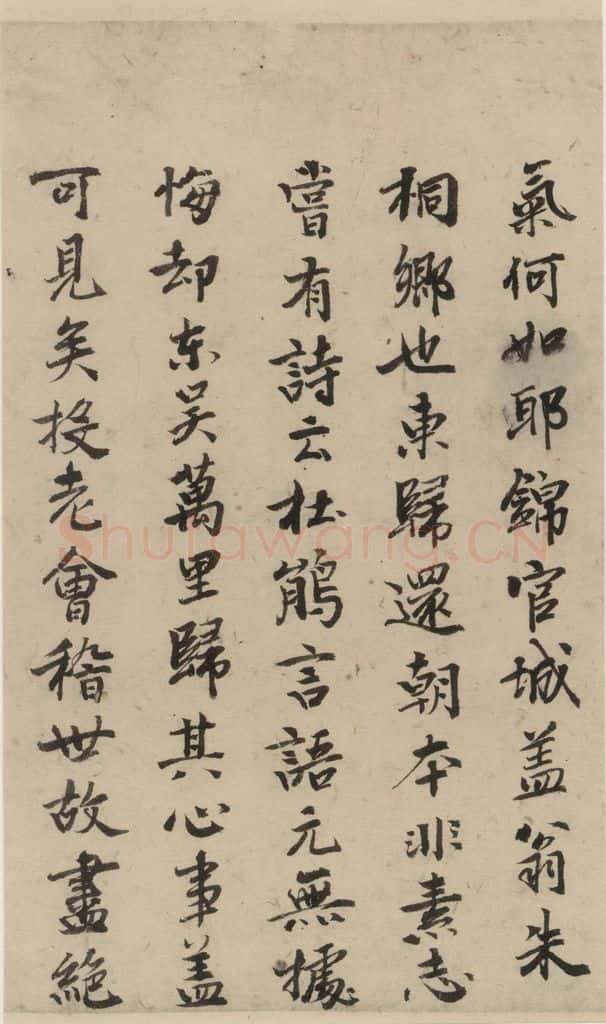 氣何如耶錦官城盖翁朱
桐鄉也東歸還朝本非素志
嘗有詩云杜鵑言語元無據
悔却東吴萬里歸其心事盖
可見矣投老會稽世故盡絕
Shufawang.CN